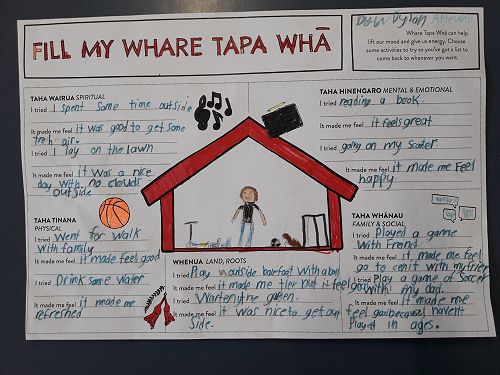 FILL MY WHARE TAPA WHĀ
Dylan Attewell
Whare Tapa Whā can help
lift our mood and give us energy. Choose
some activities to try so you've got a list to
come back to whenever you want.
TAHA WAIRUA SPIRITUAL
I tried I spent some time outside
It made me feel it was good to get some
fresh air.
I tried I lay on the lawn
It made me feel it was a nice
day with no clouds
outside
TAHA HINENGARO MENTAL & EMOTIONAL
I tried reading a book.
It made me feel it feels great.
I tried going on my scooter.
It made me feel it made me feel
happy
TAHA TINANA
PHYSICAL
I tried Went for walk
with family
It made me feel it made feel good
I tried Drink some water
It made me feel it made me
refreshed
WHENUA LAND, ROOTS
I tried Play outside barefoot with a ball
It made me feel it made me tier but it feel good
I tried Watering garden.
It made me feel it was nice to get out
side.
TAHA WHĀNAU
FAMILY & SOCIAL
I tried Played a game
with Friend
It made me feel it made me feel
go to it with my frien
I tried Play a game of Soccer
with my dad.
It made me feel it made me
feel good because havent
Played in ages.